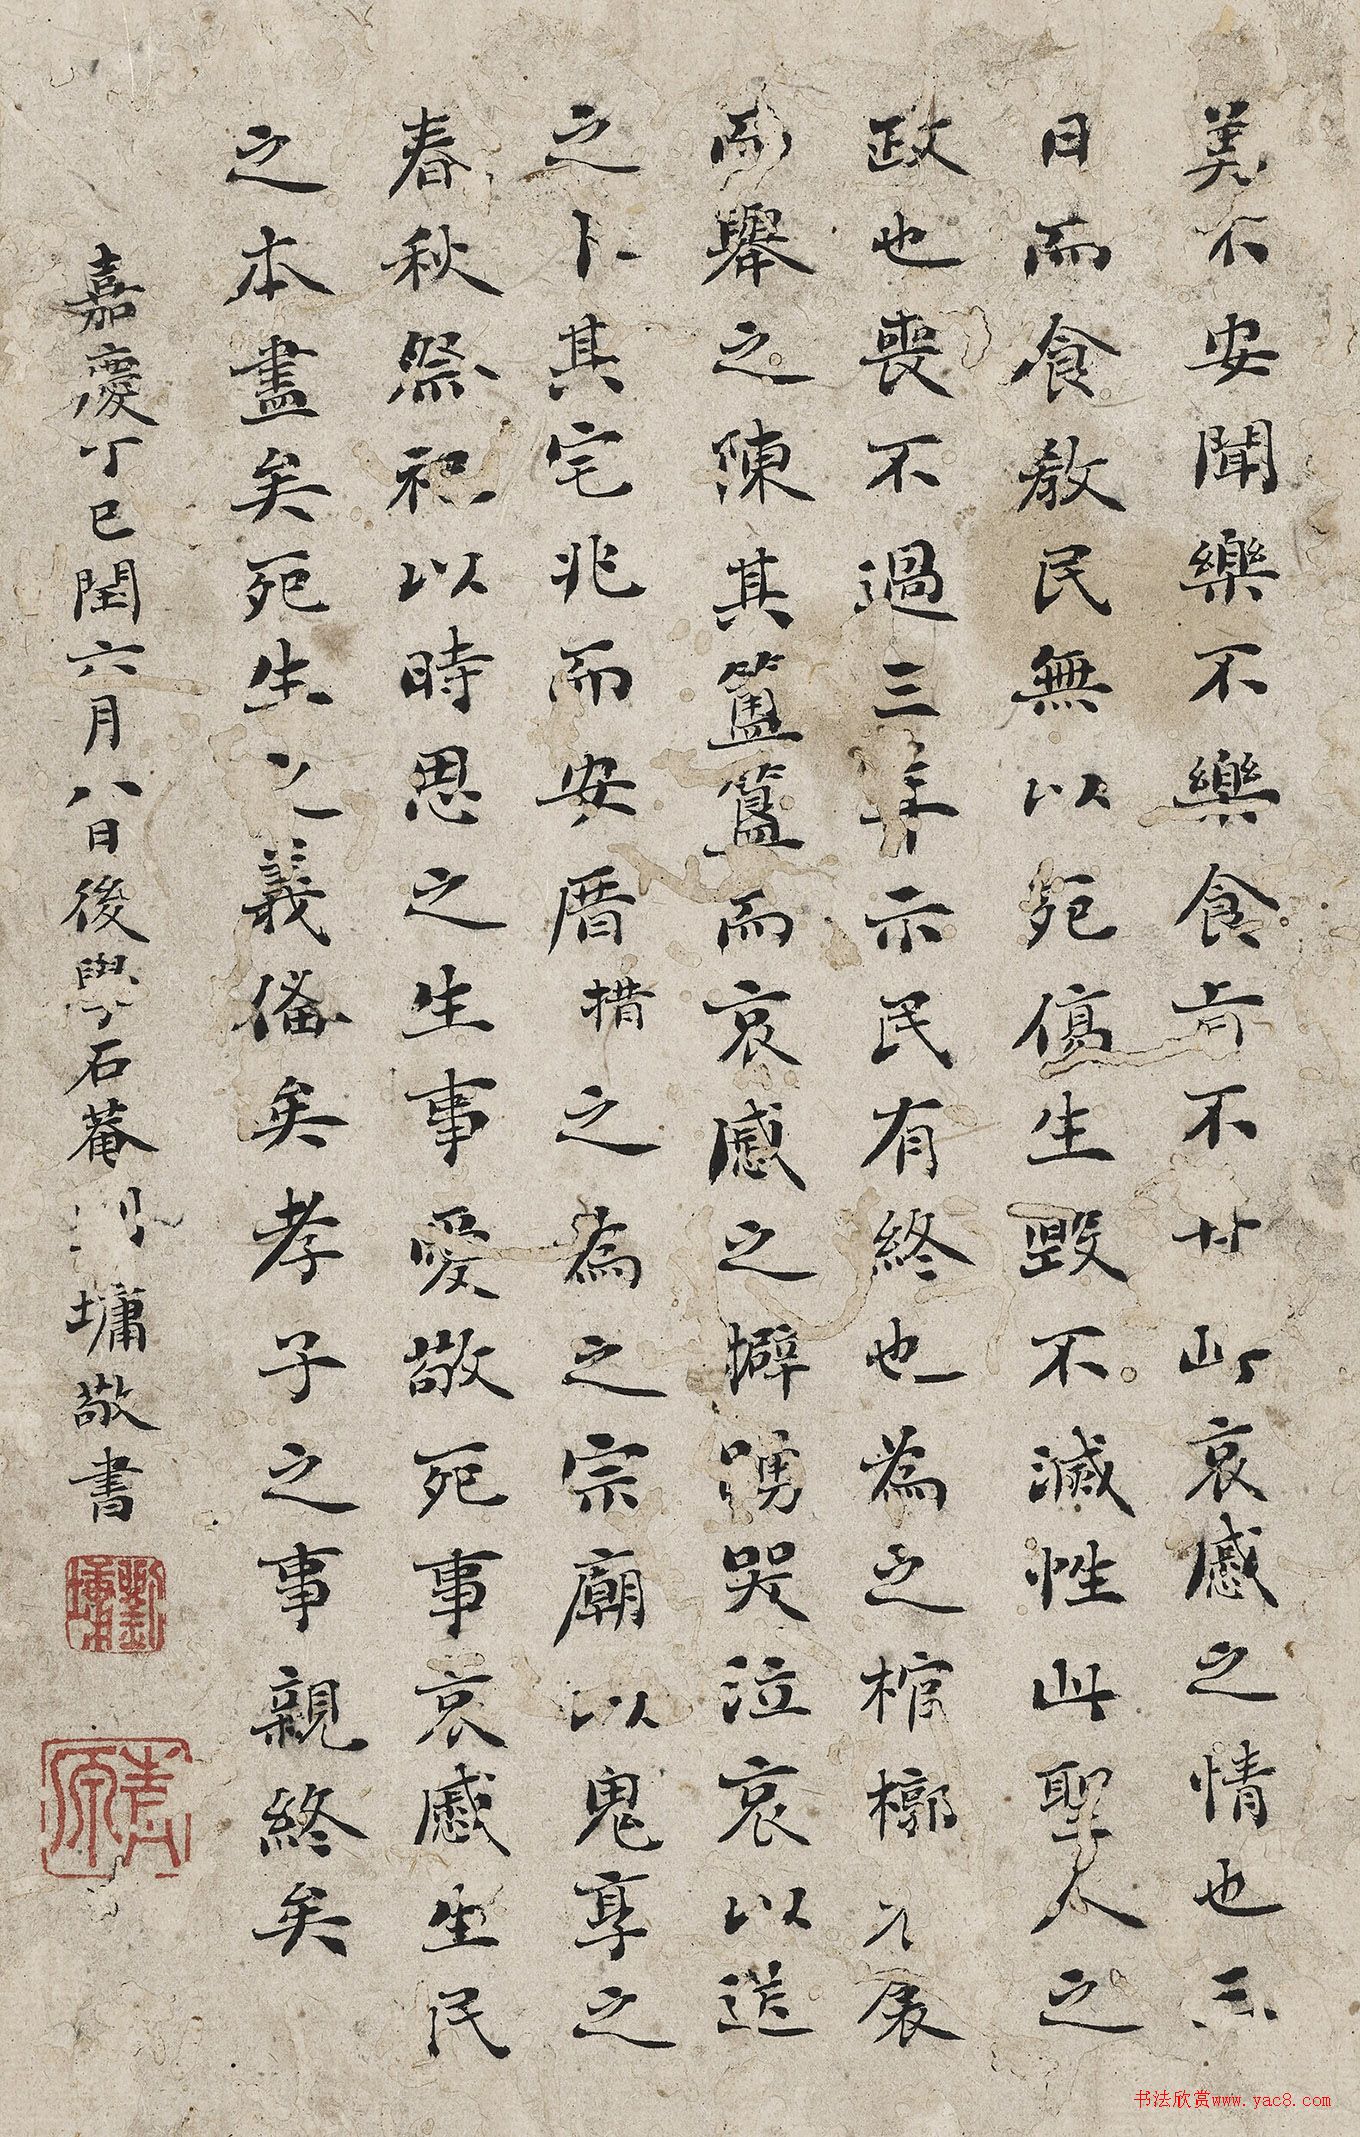 美不安聞樂不樂食旨不甘此哀慼之情也三
日而食教民無以死傷生毀不滅性此聖人之
政也喪不過三年示民有終也為之棺槨衣衾
而舉之陳其簠簋而哀慼之擗踴哭泣哀以送
之卜其宅兆而安厝措之為之宗廟以鬼享之
春秋祭祀以時思之生事愛敬死事哀慼生民
之本盡矣死生之義備矣孝子之事親終矣
嘉慶丁巳閏六月八日後學石菴劉墉敬書
劉墉
青原
书法欣赏www.yac8.com